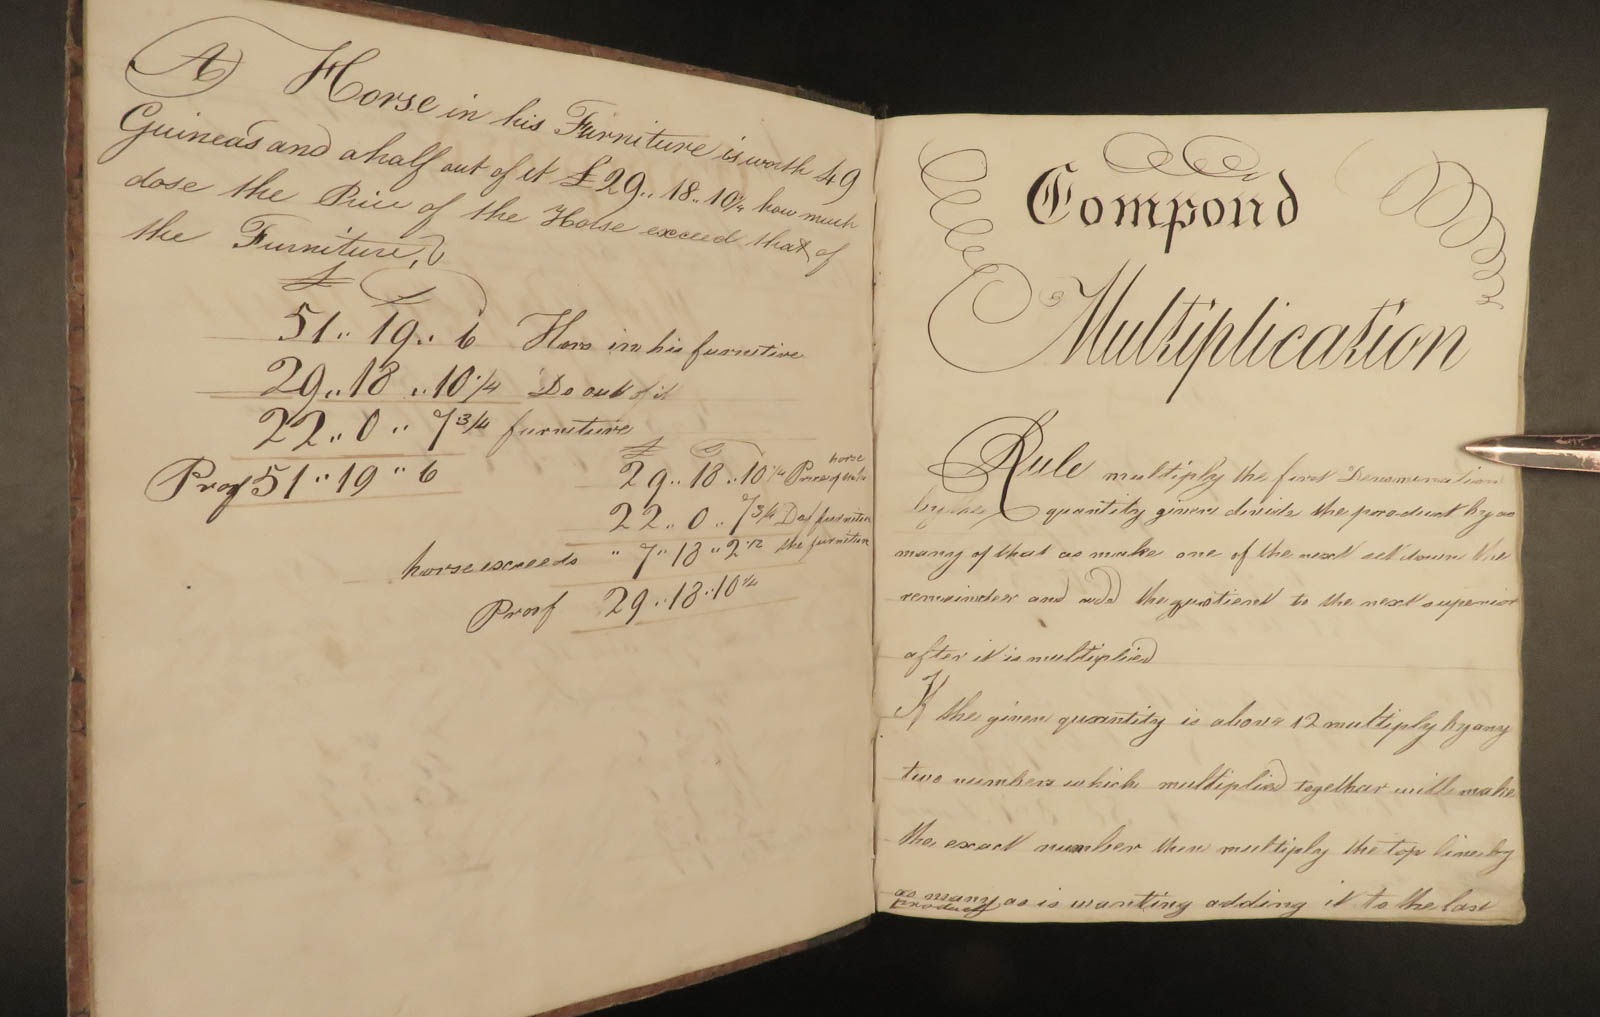 A Horse in his Furniture is worth 49
Guineas and a half out of it £29.. 18.. 10¼ how much
dose the Price of the Horse exceed that of
the Furniture,
£
51.. 19.. 6 Hors in his furnitire
29.. 18 .. 10¼ Do out of it
22.. 0 .. 7¾ furniture
Proof 51 .. 19 .. 6
£
horse
29.. 18 .. 10¼ Price of
22.. 0 .. 7¾ Do furniture
horse exceeds " 7 " 18 " 2½ the furniture
Proof 29 .. 18 .. 10¼
Compond
Multiplication
Rule multiply the first Denomination
by the quantity given divide the product by as
many of that as make one of the next set down the
remainder and add the quotient to the next superior
after it is multiplied
If the given quantity is above 12 multiply by any
two numbers which multiplied together will make
the exact number then multiply the top line by
as many as is wanting adding it to the last
product